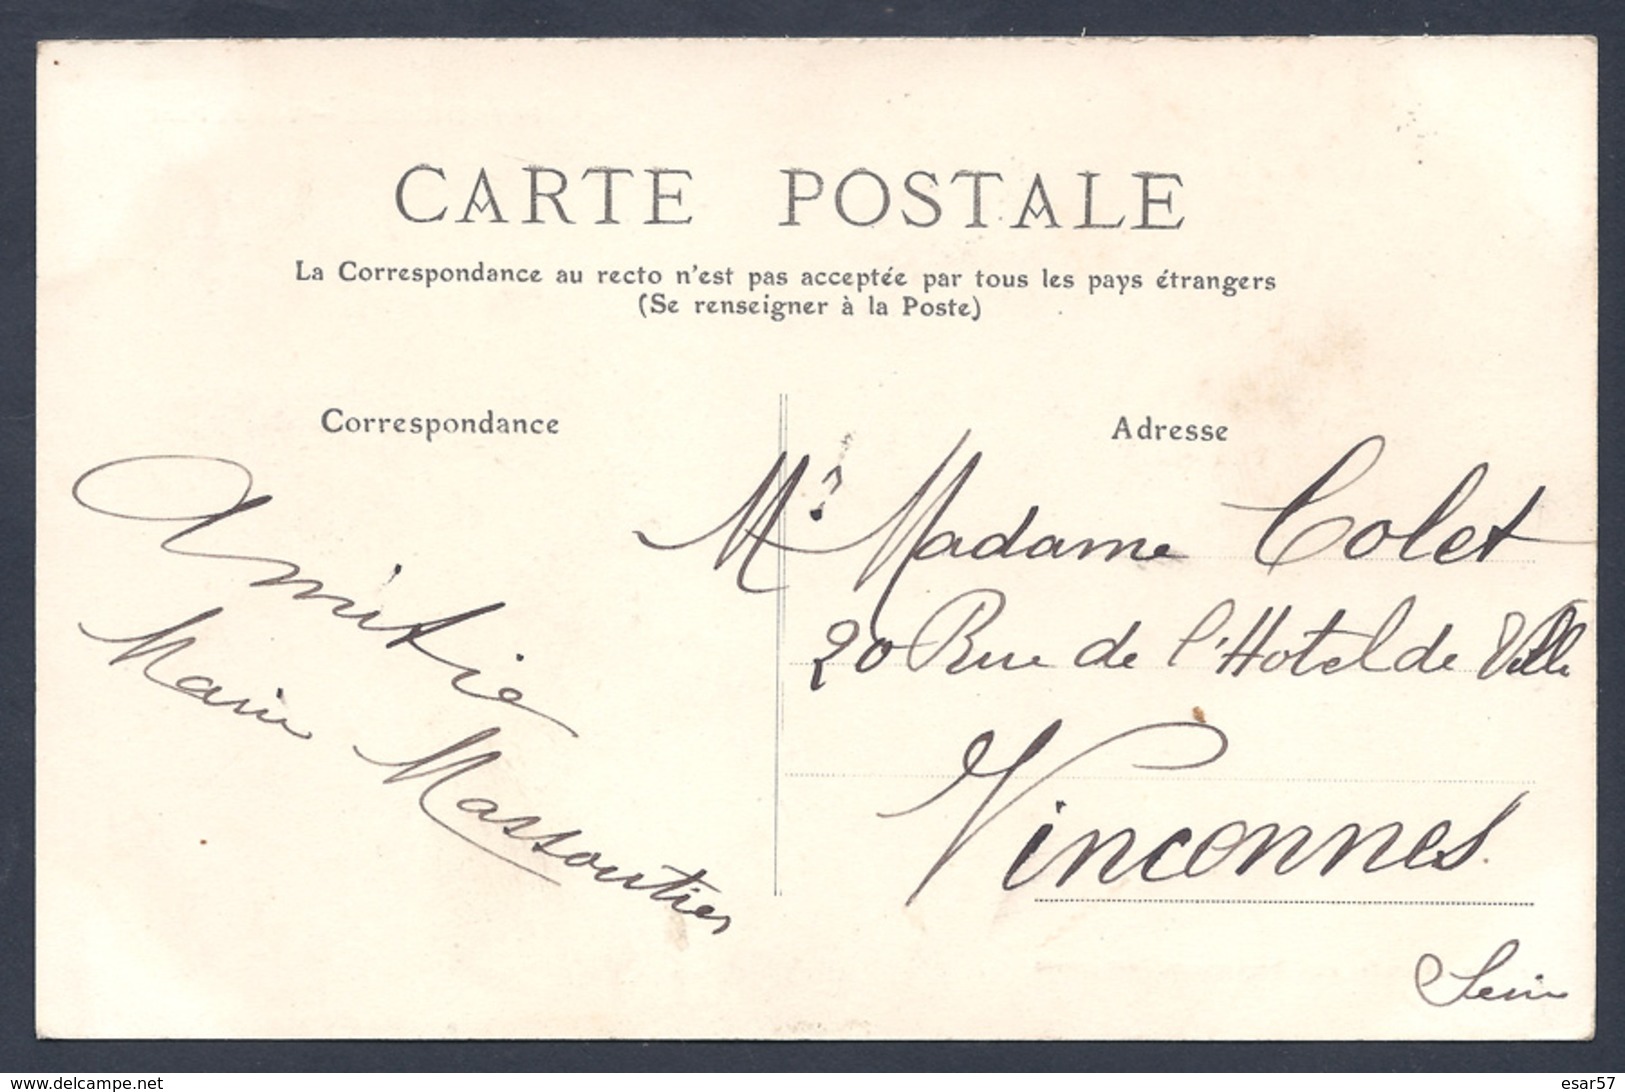 CARTE POSTALE
La Correspondance au recto n'est pas acceptée par tous les pays étrangers
(Se renseigner à la Poste)
Correspondance
Amitié
Marie Massoutier
Adresse
Mr Madame Colet
20 Rue de l'Hotel de Ville
Vincennes
Seine
www.delcampe.net
esar57